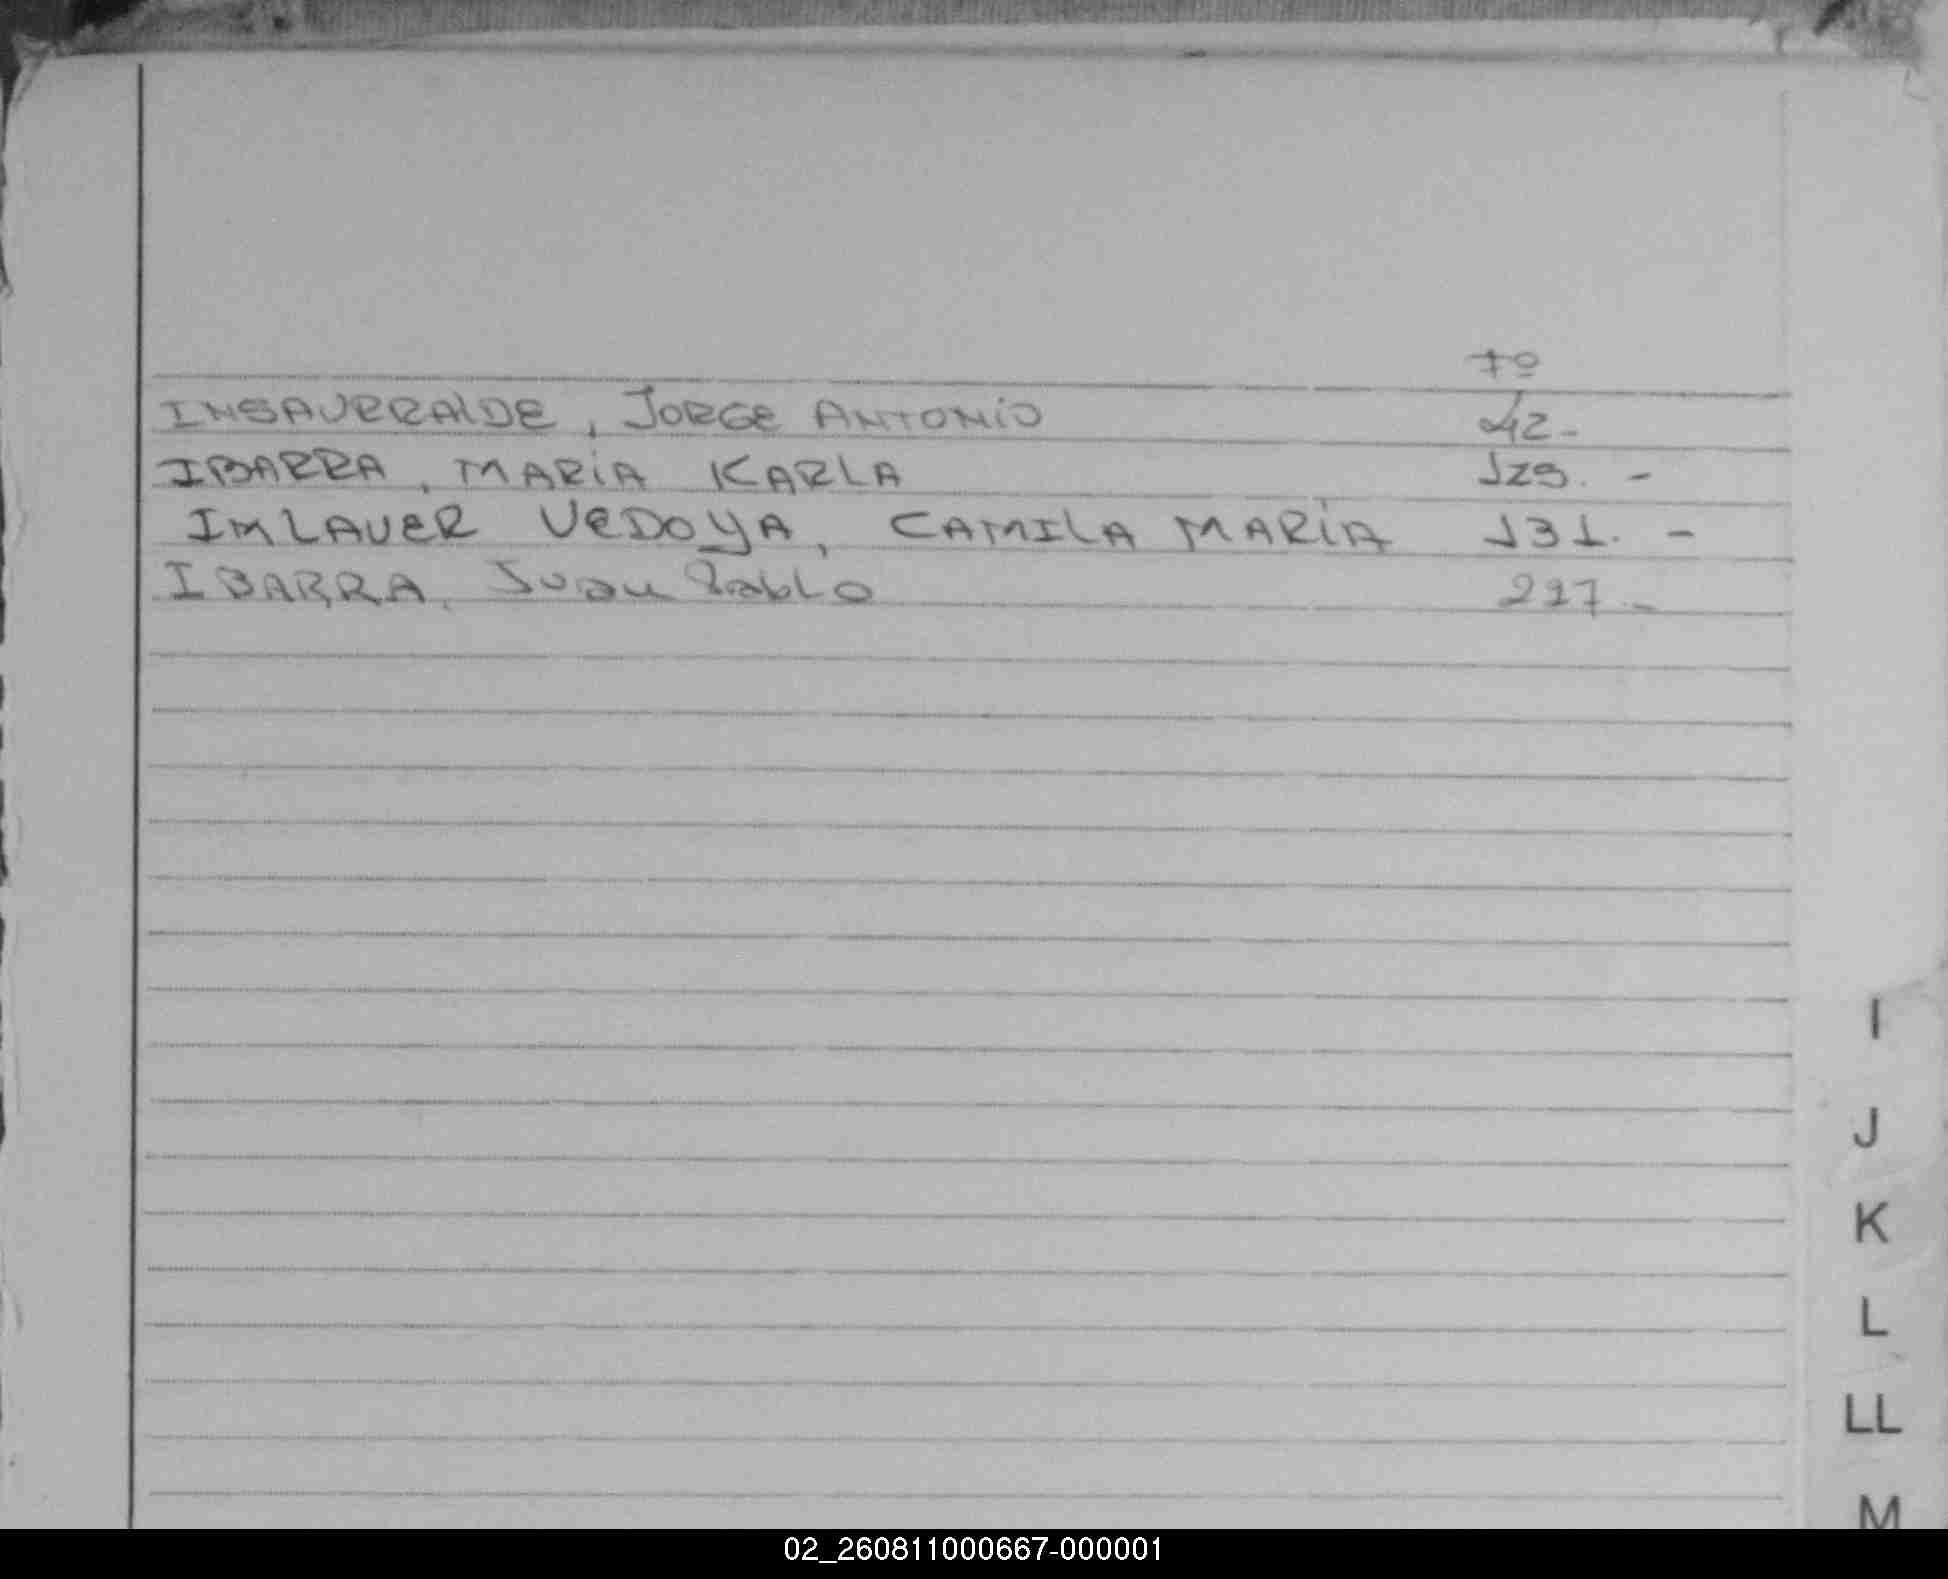 Fº
INSAURRALDE, JORGE ANTONIO 42.-
IBARRA, MARIA KARLA 129. -
IMLAUER VEDOYA, CAMILA MARIA 131. -
IBARRA, Juan Pablo 217.-
I
J
K
L
LL
M
02_260811000667-000001